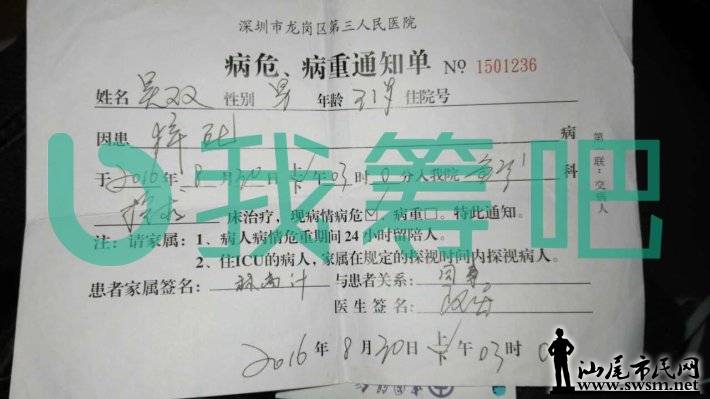 深圳市龙岗区第三人民医院
病危、病重通知单 NO 1501236
姓名 吴双 性别 男 年龄 31岁 住院号
因患 猝死 病
于 2016 年 8 月 30 日 上/下 午 03 时 0 分入我院 科
床治疗，现病情病危☑，病重□。特此通知。
注：请家属：1、病人病情危重期间24小时留陪人。
2、住ICU的病人，家属在规定的探视时间内探视病人。
患者家属签名： 与患者关系：同事
医生签名：
2016 年 8 月 30 日 上/下 午 03 时 0
第一联：交病人
我筹吧
汕尾市民网
www.swsm.net